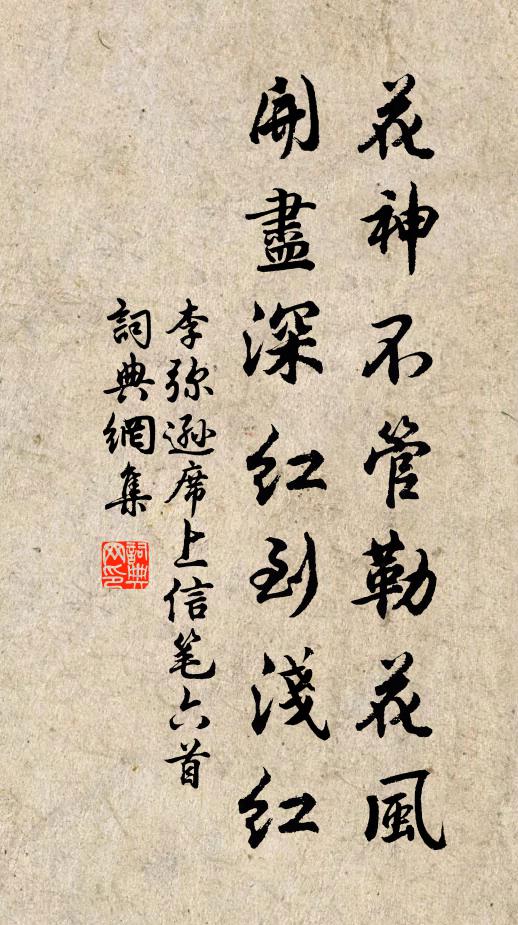 花神不管勒花風
開盡深紅到淺紅
李弥遜席上信笔六首
詞典網集
詞典网印